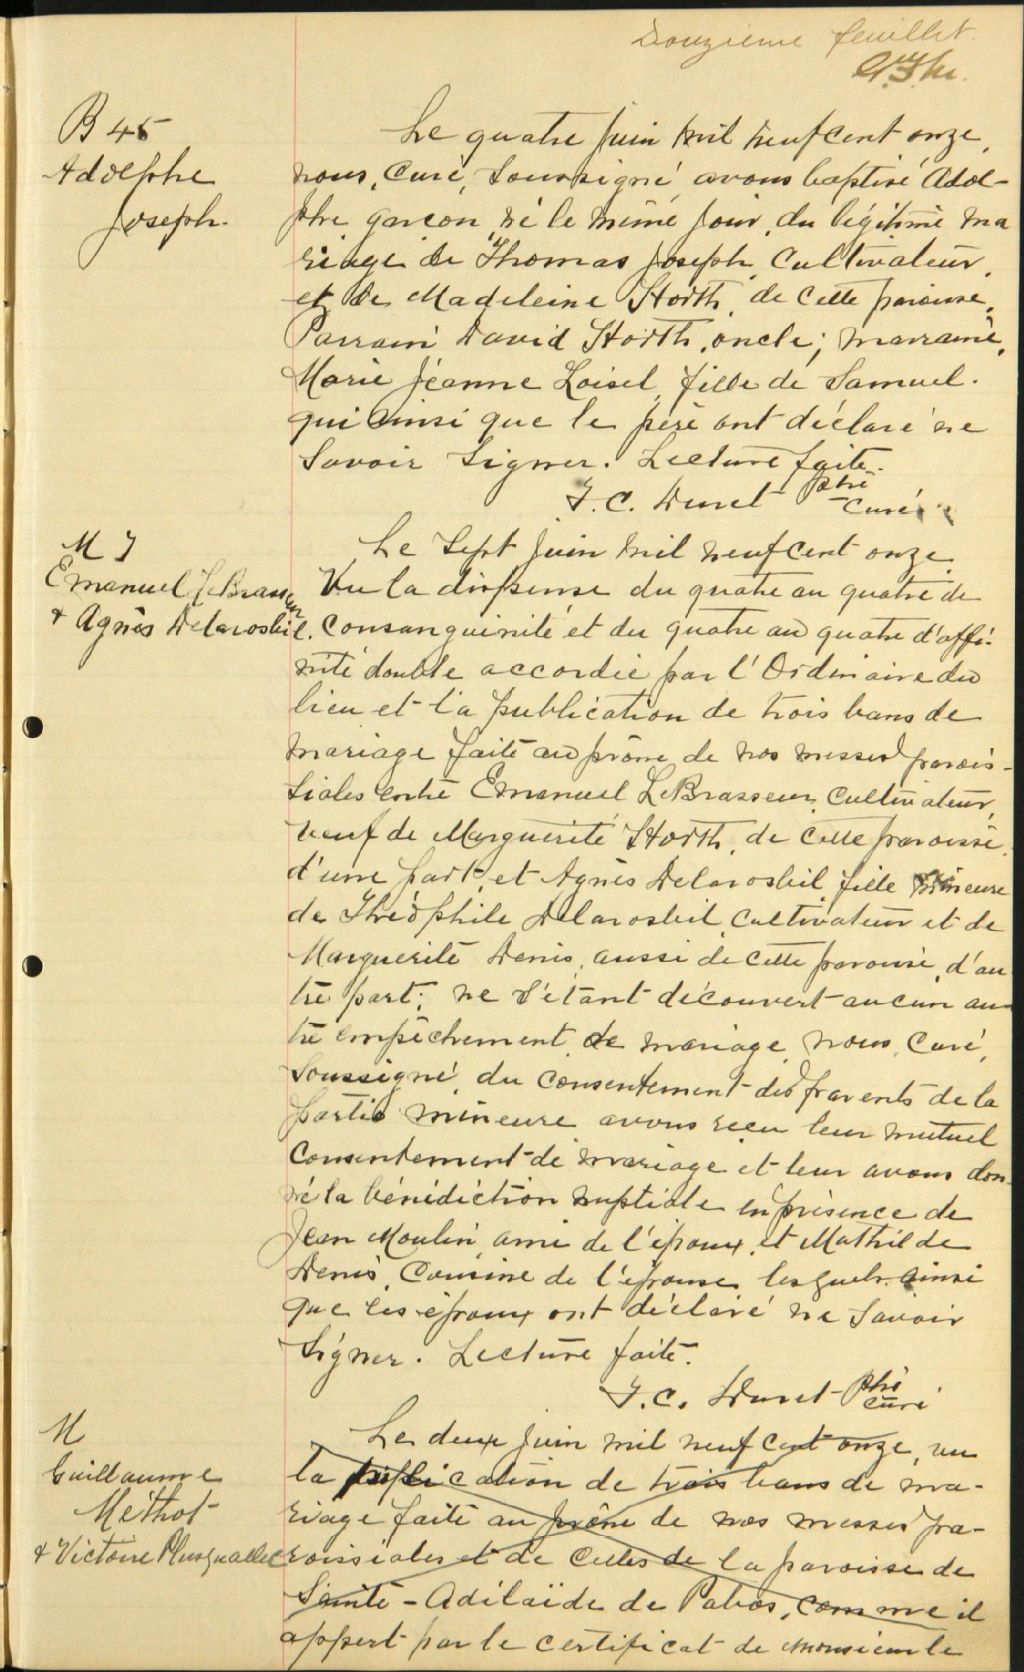 Douzième feuillet.
B 45
Adolphe
Joseph.
Le quatre juin mil neuf cent onze,
nous, curé, soussigné avons baptisé Adol-
phe garcon né le même jour, du légitime ma
riage de Thomas Joseph, cultivateur,
et de Madeleine Horth, de cette paroisse,
Parrain David Horth, oncle; marraine,
Marie Jeanne Loisel, fille de Samuel.
qui ainsi que le père ont déclaré ne
savoir signer. Lecture faite.
F. C. Duret Ptre
Curé
M 7
Emanuel LeBrasseur
& Agnès Delarosbil.
Le sept juin mil neuf cent onze,
Vu la dispense du quatre au quatre de
consanguinité et du quatre au quatre d'affi-
nité double accordée par l'Ordinaire du
lieu et la publication de trois bans de
mariage faite au prône de nos messes parois-
siales entre Emanuel LeBrasseur, cultivateur,
veuf de Marguerite Horth, de cette paroisse,
d'une part, et Agnès Delarosbil fille mineure
de Théophile Delarosbil, cultivateur et de
Marguerite Denis, aussi de cette paroisse, d'au
tre part; ne s'étant découvert aucun au-
tre empêchement de mariage, nous, curé,
soussigné, du consentement des parents de la
partie mineure avons reçu leur mutuel
consentement de mariage et leur avons don-
né la bénédiction nuptiale en présence de
Jean Moulin, ami de l'époux, et Mathilde
Denis, cousine de l'épouse lesquels ainsi
que les époux ont déclaré ne savoir
signer. Lecture faite.
F. C. Duret Ptre
curé
M
Guillaume
Méthot
& Victoire Plusquallec
Le deux juin mil neuf cent onze, vu
la publication de trois bans de ma-
riage faite au prône de nos messes pa-
roissiales et de celles de la paroisse de
Sainte-Adélaïde de Pabos, comme il
appert par le certificat de monsieur le